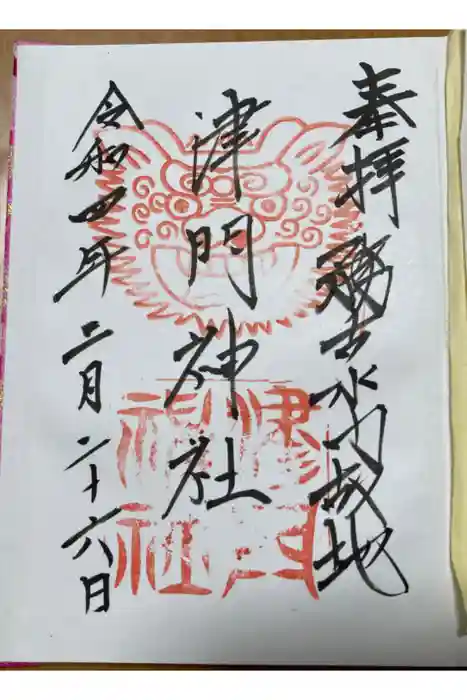 奉拝 務古水門城地
津門神社
令和四年 二月二十六日
津門
神社